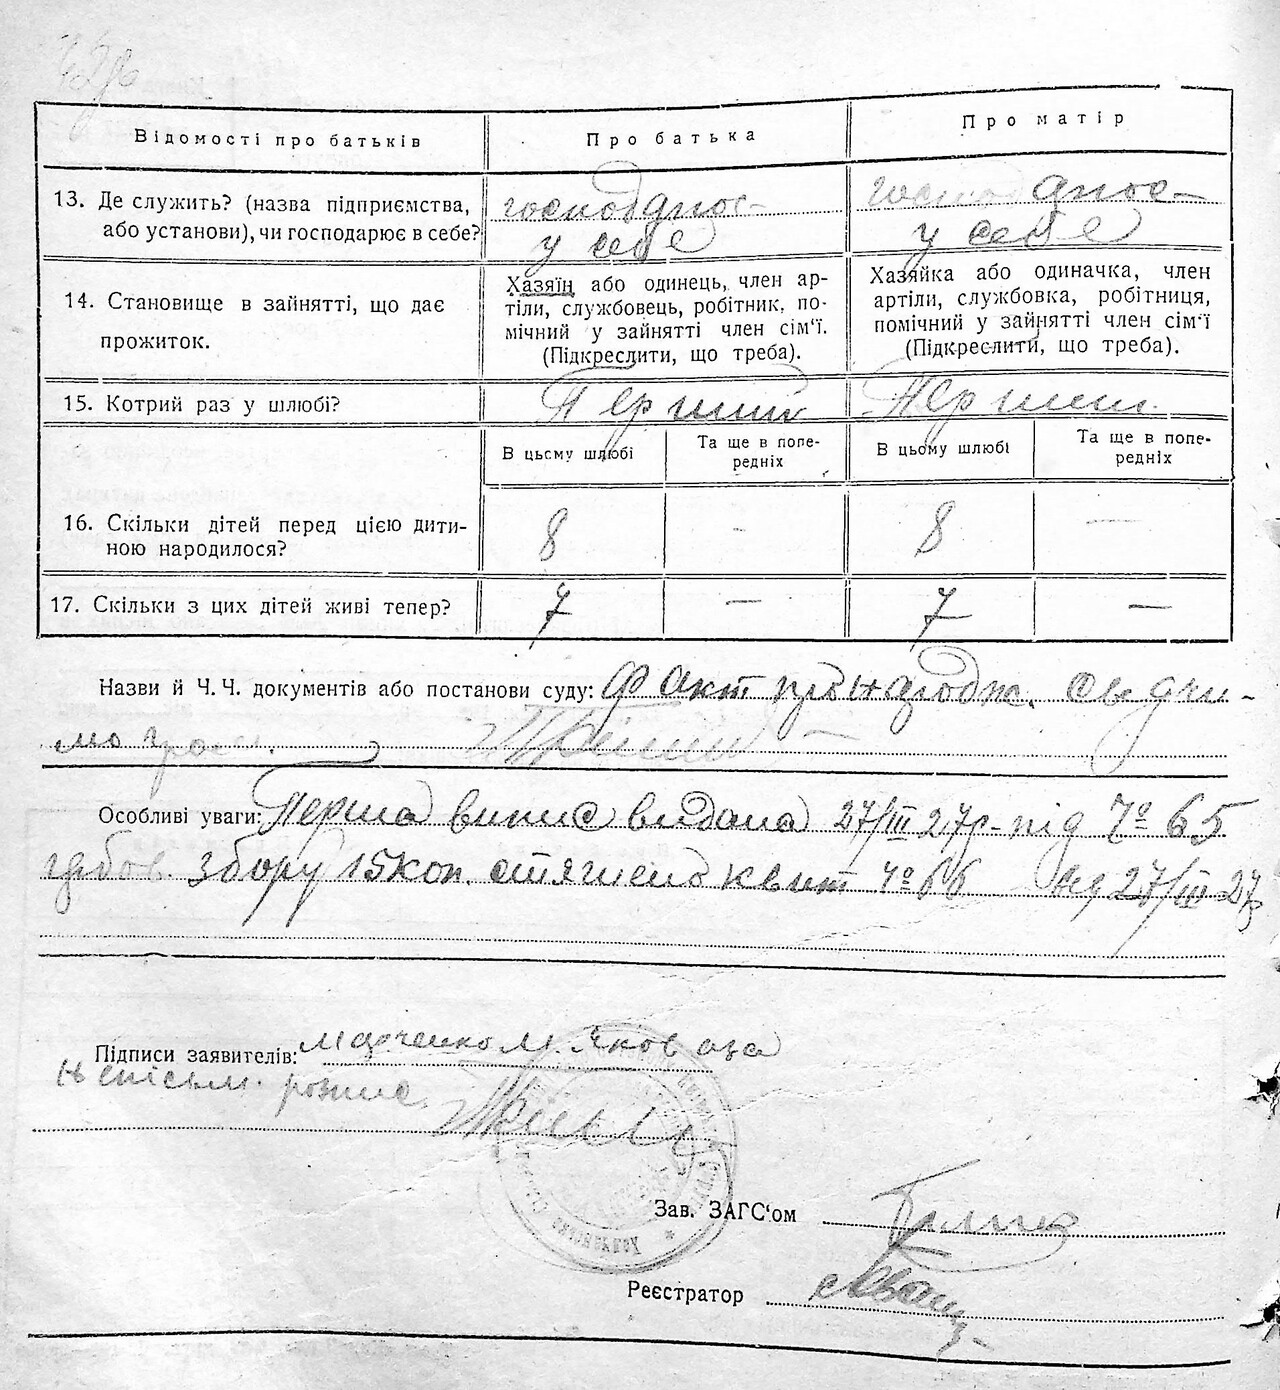 Відомості про батьків
Про батька
Про матір
13. Де служить? (назва підприємства,
або установи), чи господарює в себе?
у себе
у себе
14. Становище в зайнятті, що дає
прожиток.
Хазяїн або одинець, член ар-
тіли, службовець, робітник, по-
мічний у зайнятті член сім'ї.
(Підкреслити, що треба).
Хазяйка або одиначка, член
артіли, службовка, робітниця,
помічний у зайнятті член сім'ї
(Підкреслити, що треба).
15. Котрий раз у шлюбі?
Перший
В цьому шлюбі
Та ще в попе-
редніх
В цьому шлюбі
Та ще в попе-
редніх
16. Скільки дітей перед цією дити-
ною народилося?
8 - 8 —
17. Скільки з цих дітей живі тепер?
7 — 7 —
Назви й Ч.Ч. документів або постанови суду: Факт
Особливі уваги: Перша випис видана 27/III 27р. під № 65
збору 15 коп. стягнено квит № 66 від 27/III 27
Підписи заявителів:
Зав. ЗАГС'ом
Реєстратор